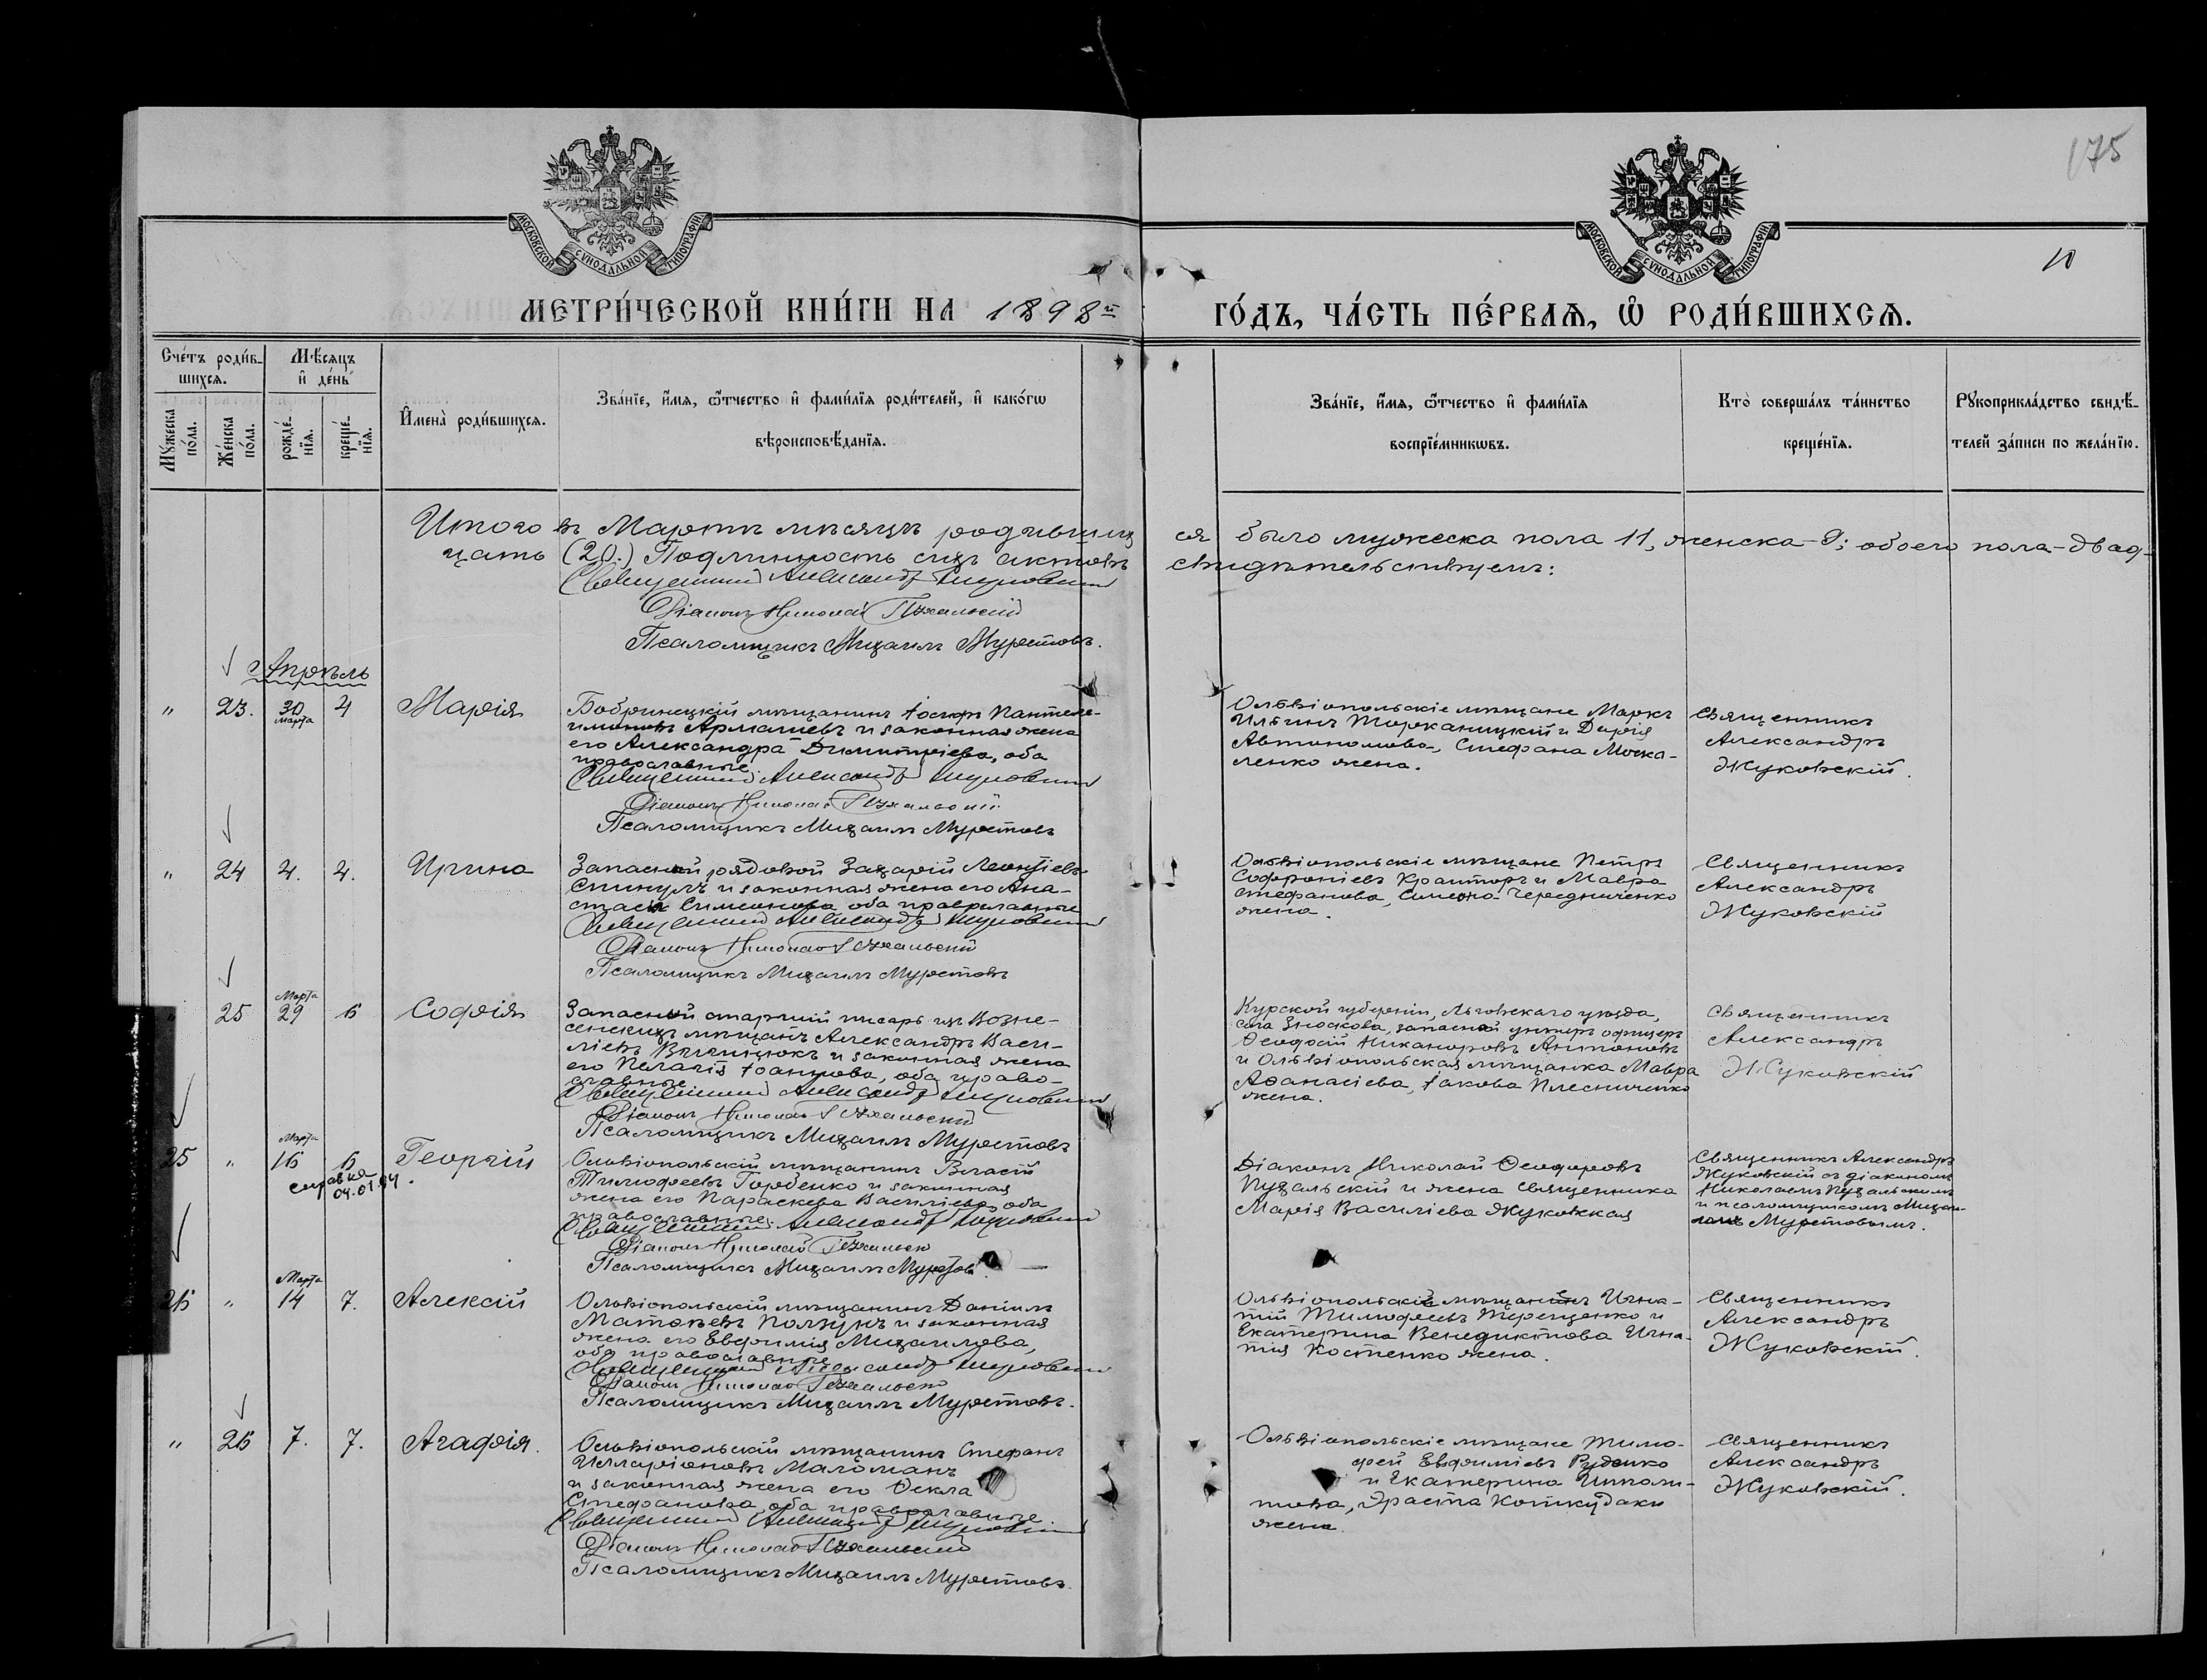 175
МОСКОВСКОЙ СѴНОДАЛЬНОЙ ТИПОГРАФІИ
МОСКОВСКОЙ СѴНОДАЛЬНОЙ ТИПОГРАФІИ
10
МЕТРИ́ЧЕСКОЙ КНИ́ГИ НА 1898й ГО́ДЪ, ЧА́СТЬ ПЕ́РВАѦ, Ѡ҆ РОДИ́ВШИХСѦ.
Сче́тъ роди́в-
шихсѧ.
Мꙋ́жеска по́ла.
Же́нска по́ла.
Мѣ́сѧцъ
и҆ де́нь
рожде́-
нїѧ.
креще́-
нїѧ.
И҆мена̀ роди́вшихсѧ.
Зва́нїе, и҆́мѧ, ѻ҆́тчество и҆ фами́лїѧ роди́телей, и҆ како́гѡ
вѣроисповѣ́данїѧ.
Зва́нїе, и҆́мѧ, ѻ҆́тчество и҆ фами́лїѧ
воспрїе́мникѡвъ.
Кто̀ соверша́лъ та́инство
креще́нїѧ.
Рꙋкоприкла́дство свидѣ́-
телей за́писи по жела́нїю.
Итого въ Мартѣ мѣсяцѣ родивших ся было мужеска пола 11, женска-9; обоего пола-двад-
цать (20.) Подлинность сихъ актовъ свидѣтельствуемъ:
Священникъ Александръ Жуковскій
Діаконъ Николай Пухальскій
Псаломщикъ Михаилъ Муретовъ.
Апрѣль
" 23. 30 Марта 4 Марія
Бобринецкій мѣщанинъ Іосифъ Пантеле-
имоновъ Армашевъ и законная жена
его Александра Димитріева, оба
православные.
Священникъ Александръ Жуковскій
Діаконъ Николай Пухальскій
Псаломщикъ Михаилъ Муретовъ
Ольвіопольскіе мѣщане Маркъ
Ильинъ Торканицкій и Дарія
Автономова, Стефана Моска-
ленко жена.
Священникъ
Александръ
Жуковскій.
" 24 4. 4. Ирина
Запасный рядовой Захарій Леонтіевъ
и законная жена его Ана-
стасія Симеонова, оба православные
Священникъ Александръ Жуковскій
Діаконъ Николай Пухальскій
Псаломщикъ Михаилъ Муретовъ
Ольвіопольскіе мѣщане Петръ
Софроніевъ Крамторъ и Мавра
Стефанова, Симеона Чередниченко
жена.
Священникъ
Александръ
Жуковскій
" 25 Марта 29 6 Софія
Запасный старшій писарь изъ Возне-
сенскихъ мѣщанъ Александръ Васи-
ліевъ и законная жена
его Пелагія Іоаннова, оба право-
славные
Священникъ Александръ Жуковскій
Діаконъ Николай Пухальскій
Псаломщикъ Михаилъ Муретовъ
Курской губерніи, Льговскаго уѣзда,
села Зноскова, запасной унтеръ офицеръ
Ѳеодосій Никаноровъ Антоновъ
и Ольвіопольская мѣщанка Мавра
Аѳанасіева, Іакова Плесниченко
жена.
Священникъ
Александръ
Жуковскій
25 " Марта 16 6 Георгій
справка
04.01.94.
Ольвіопольскій мѣщанинъ Власій
Тимофеевъ Горбенко и законная
жена его Параскева Василіева, оба
православные.
Священникъ Александръ Жуковскій
Діаконъ Николай Пухальскій
Псаломщикъ Михаилъ Муретовъ.
Діаконъ Николай Ѳеодоровъ
Пухальскій и жена священника
Марія Василіева Жуковская
Священникъ Александръ
Жуковскій съ діакономъ
Николаемъ Пухальскимъ
и псаломщикомъ Михаи-
ломъ Муретовымъ.
26 " Марта 14 7. Алексій
Ольвіопольскій мѣщанинъ Даніилъ
Матѳеевъ Ползунъ и законная
жена его Евфимія Михаилова,
оба православные
Священникъ Александръ Жуковскій
Діаконъ Николай Пухальскій
Псаломщикъ Михаилъ Муретовъ.
Ольвіопольскіе мѣщане Игна-
тій Тимофеевъ Терещенко и
Екатерина Венедиктова Игна-
тія Костенко жена.
Священникъ
Александръ
Жуковскій.
" 26 7. 7. Агафія.
Ольвіопольскій мѣщанинъ Стефанъ
Илларіоновъ Маломанъ
и законная жена его Ѳекла
Стефанова, оба православные.
Священникъ Александръ Жуковскій
Діаконъ Николай Пухальскій
Псаломщикъ Михаилъ Муретовъ.
Ольвіопольскіе мѣщане Тимо-
фей Евфиміевъ Руденко
и Екатерина Ипполи-
това, Эраста Котикудаки
жена.
Священникъ
Александръ
Жуковскій.